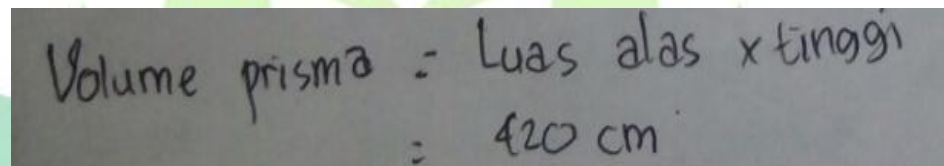 Volume prisma = Luas alas x tinggi
= 420 cm